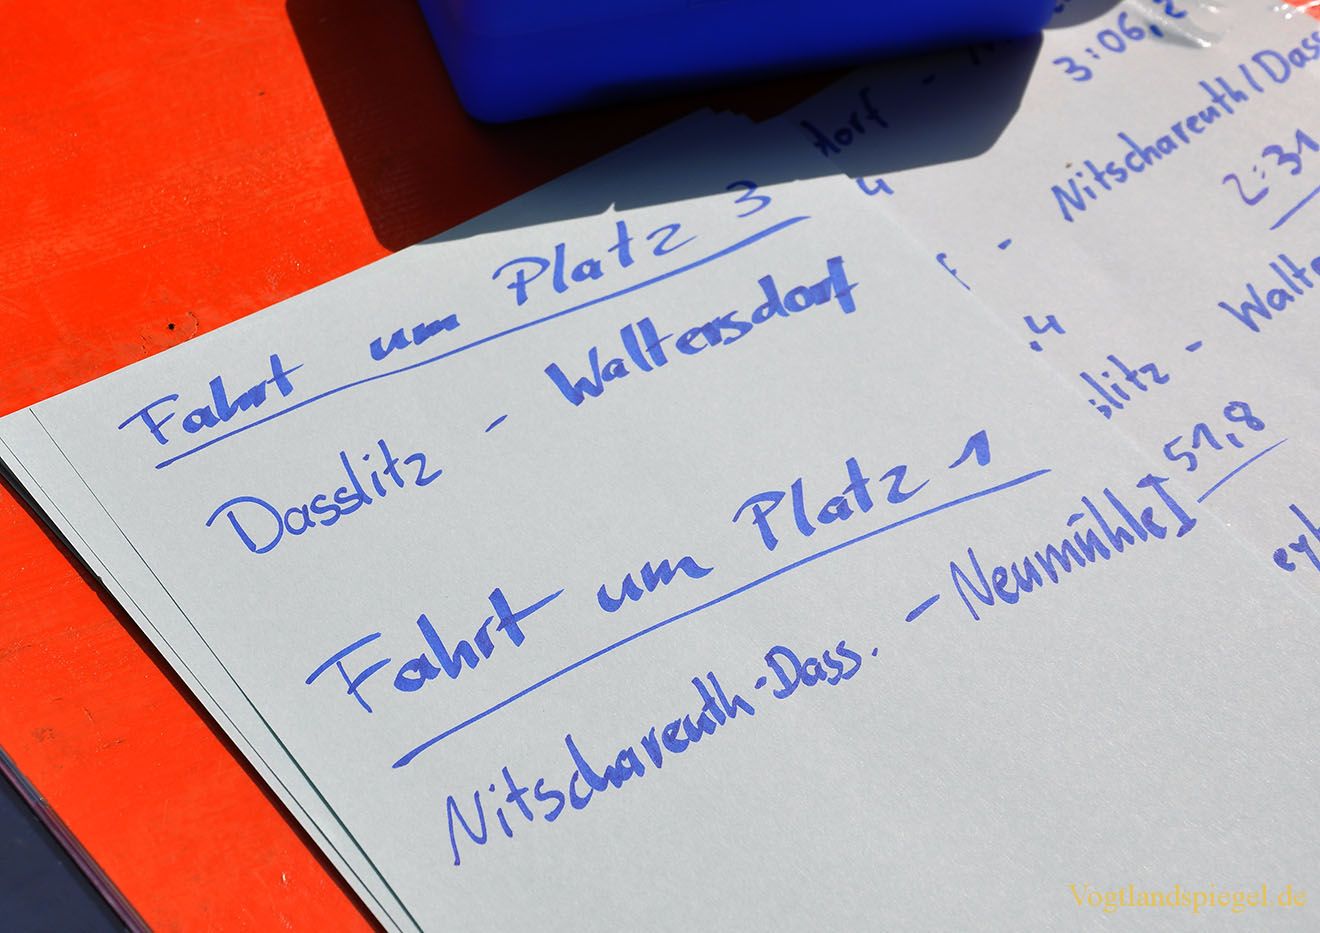 Fahrt um Platz 3
Dasslitz - Waltersdorf
Fahrt um Platz 1
Nitschareuth-Dass. - Neumühle I
dorf -
3:06,2
4
- Nitschareuth / Dass
,4
2:31
slitz - Walte
51,8
Vogtlandspiegel.de